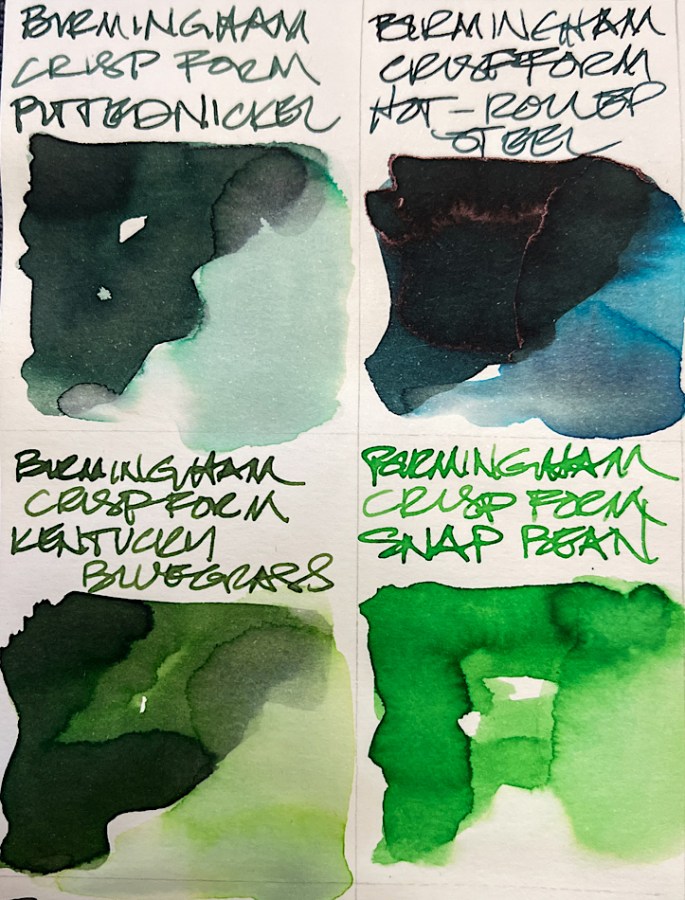 BIRMINGHAM
CRISP FORM
PITTEDNICKEL
BIRMINGHAM
CRISP FORM
HOT-ROLLED
STEEL
BIRMINGHAM
CRISP FORM
KENTUCKY
BLUEGRASS
BIRMINGHAM
CRISP FORM
SNAP BEAN